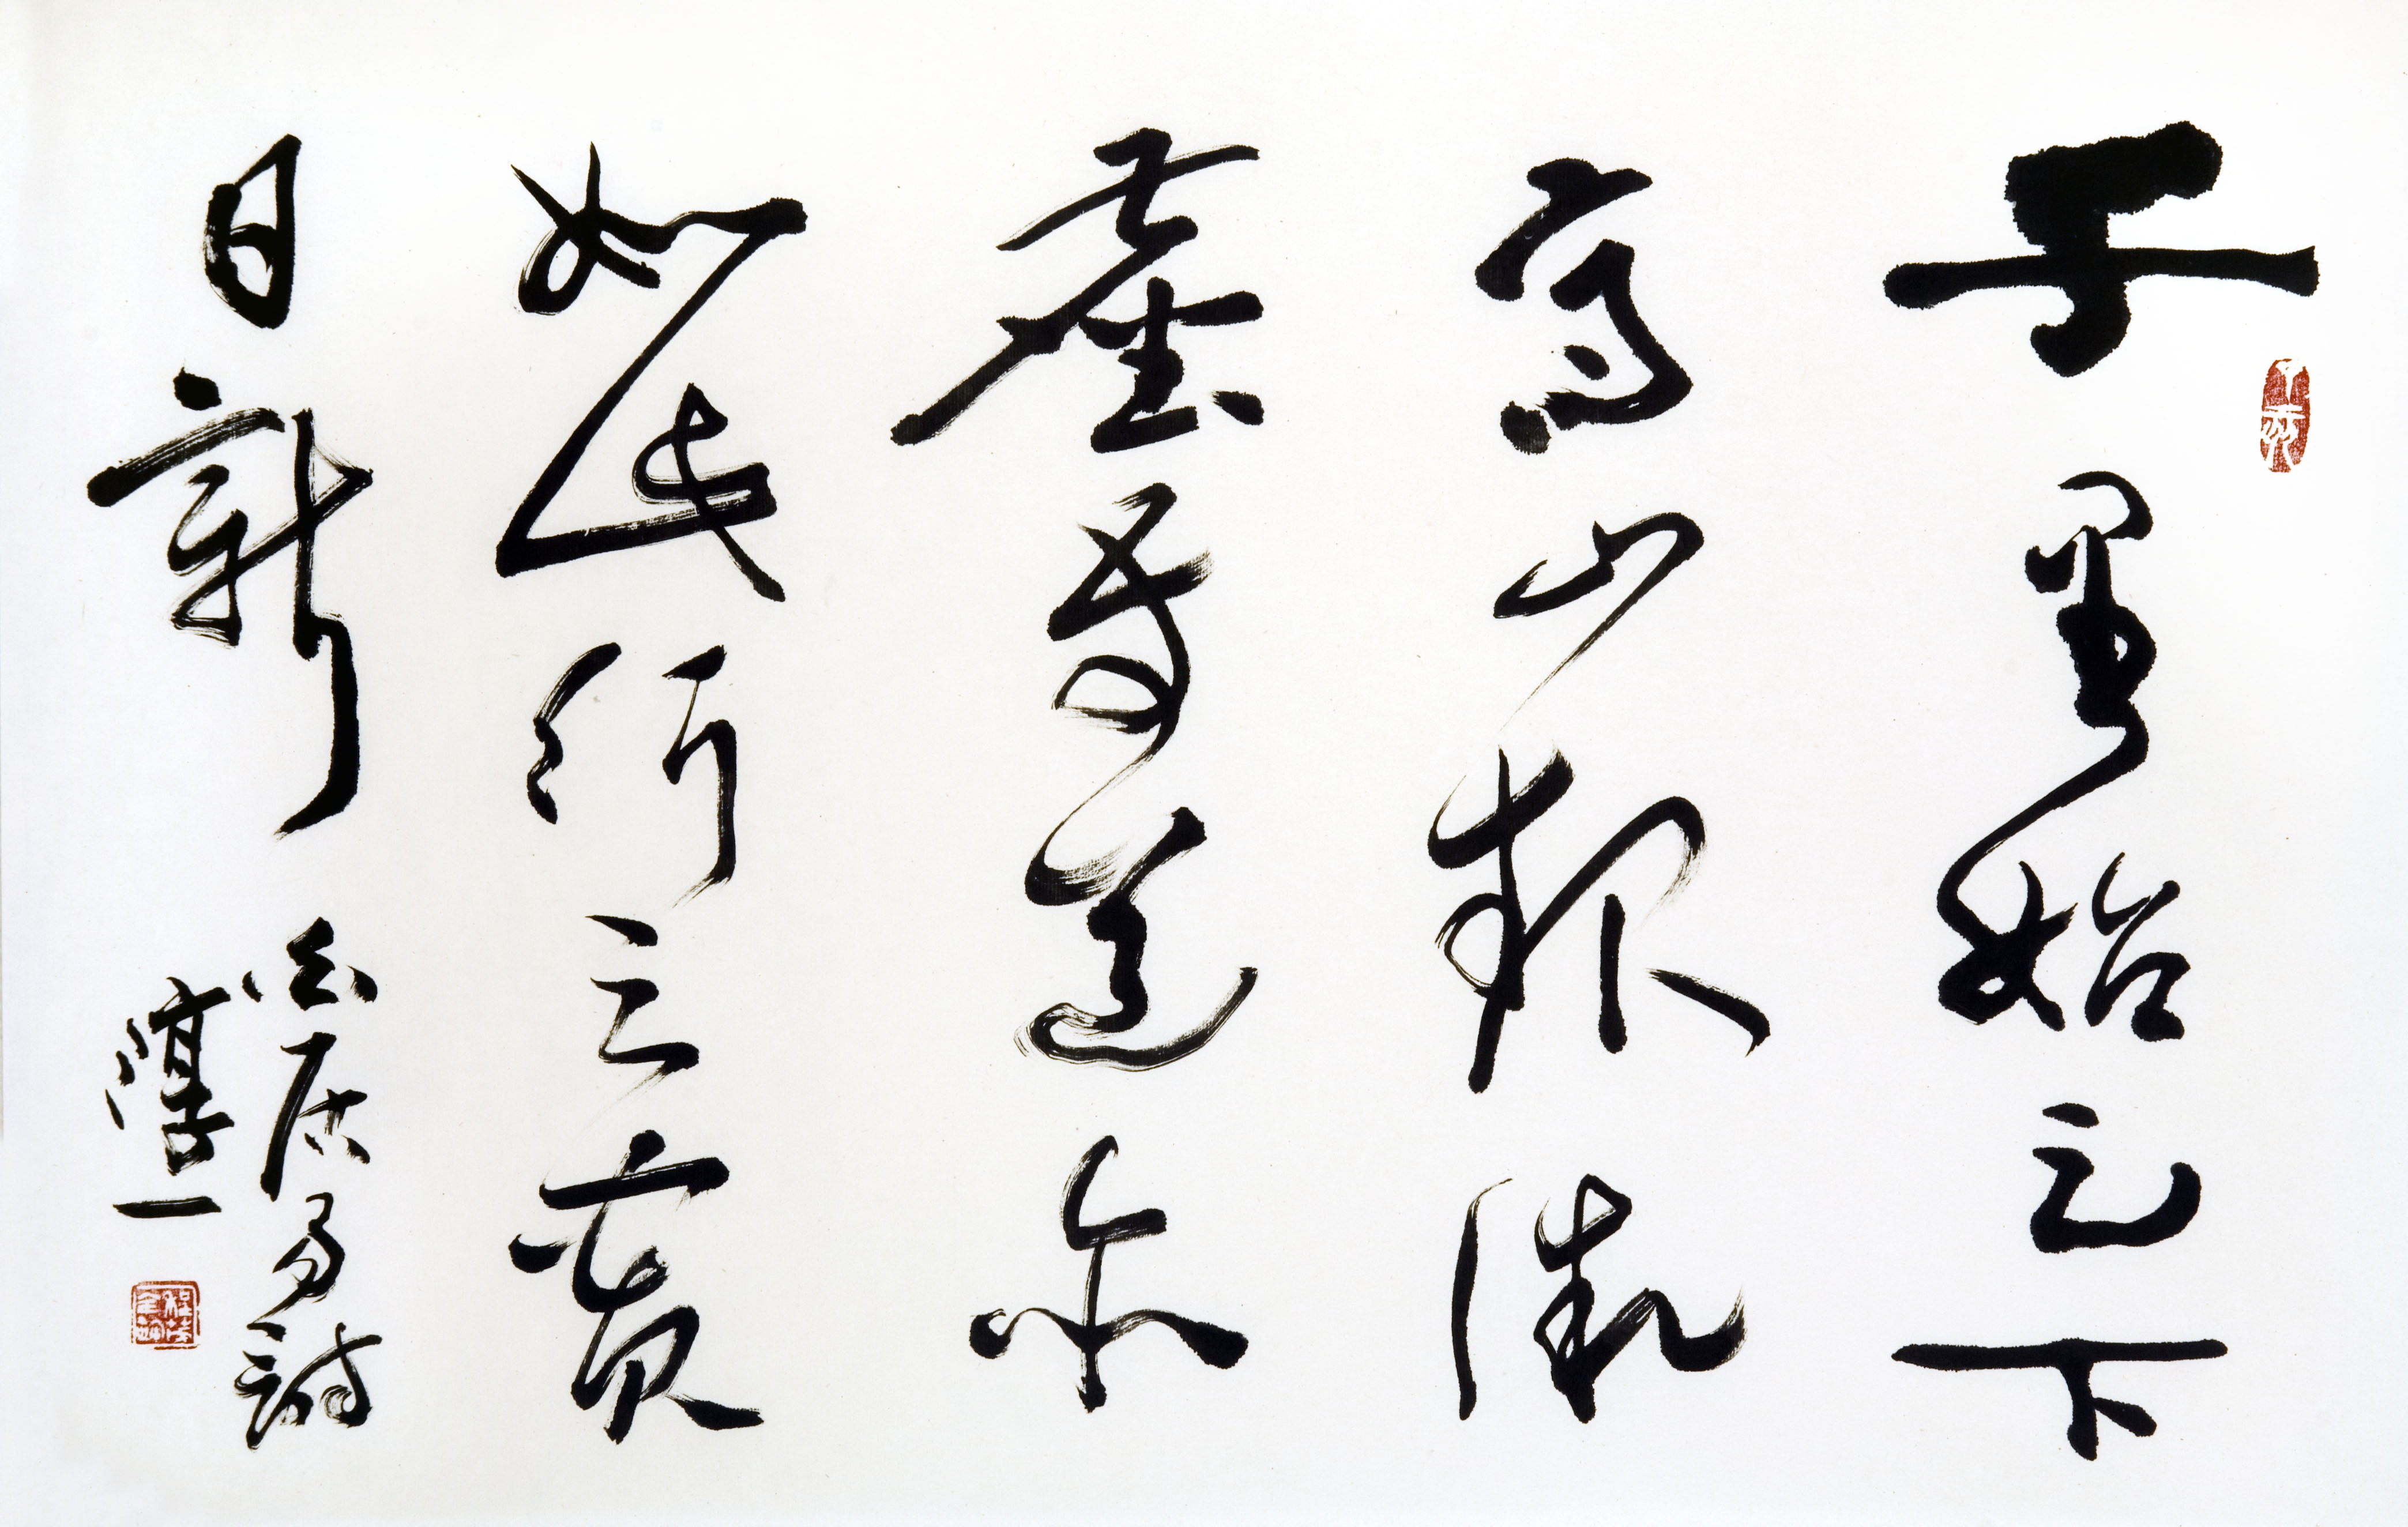 千里始足下
高山起微
塵吾道亦
如此行之貴
日新
白居易詩